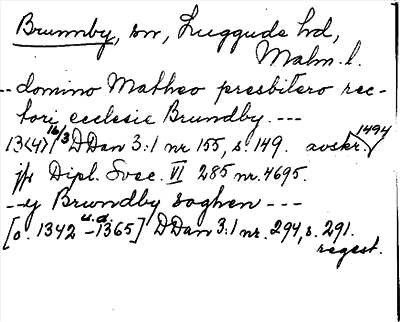 Brunnby, sn, Luggude hd,
Malm. l.
-- domino Matheo presbitero rec-
tori ecclesie Brundby. ---
13(4)7 16/3 DDan 3:1 nr 155, s. 149. avskr. 1494
jfr Dipl. Svec. VI 285 nr. 4695.
-- y Brwndby soghen ---
[o. 1342 u.å. -1365] DDan 3:1 nr. 294, s. 291.
regest.